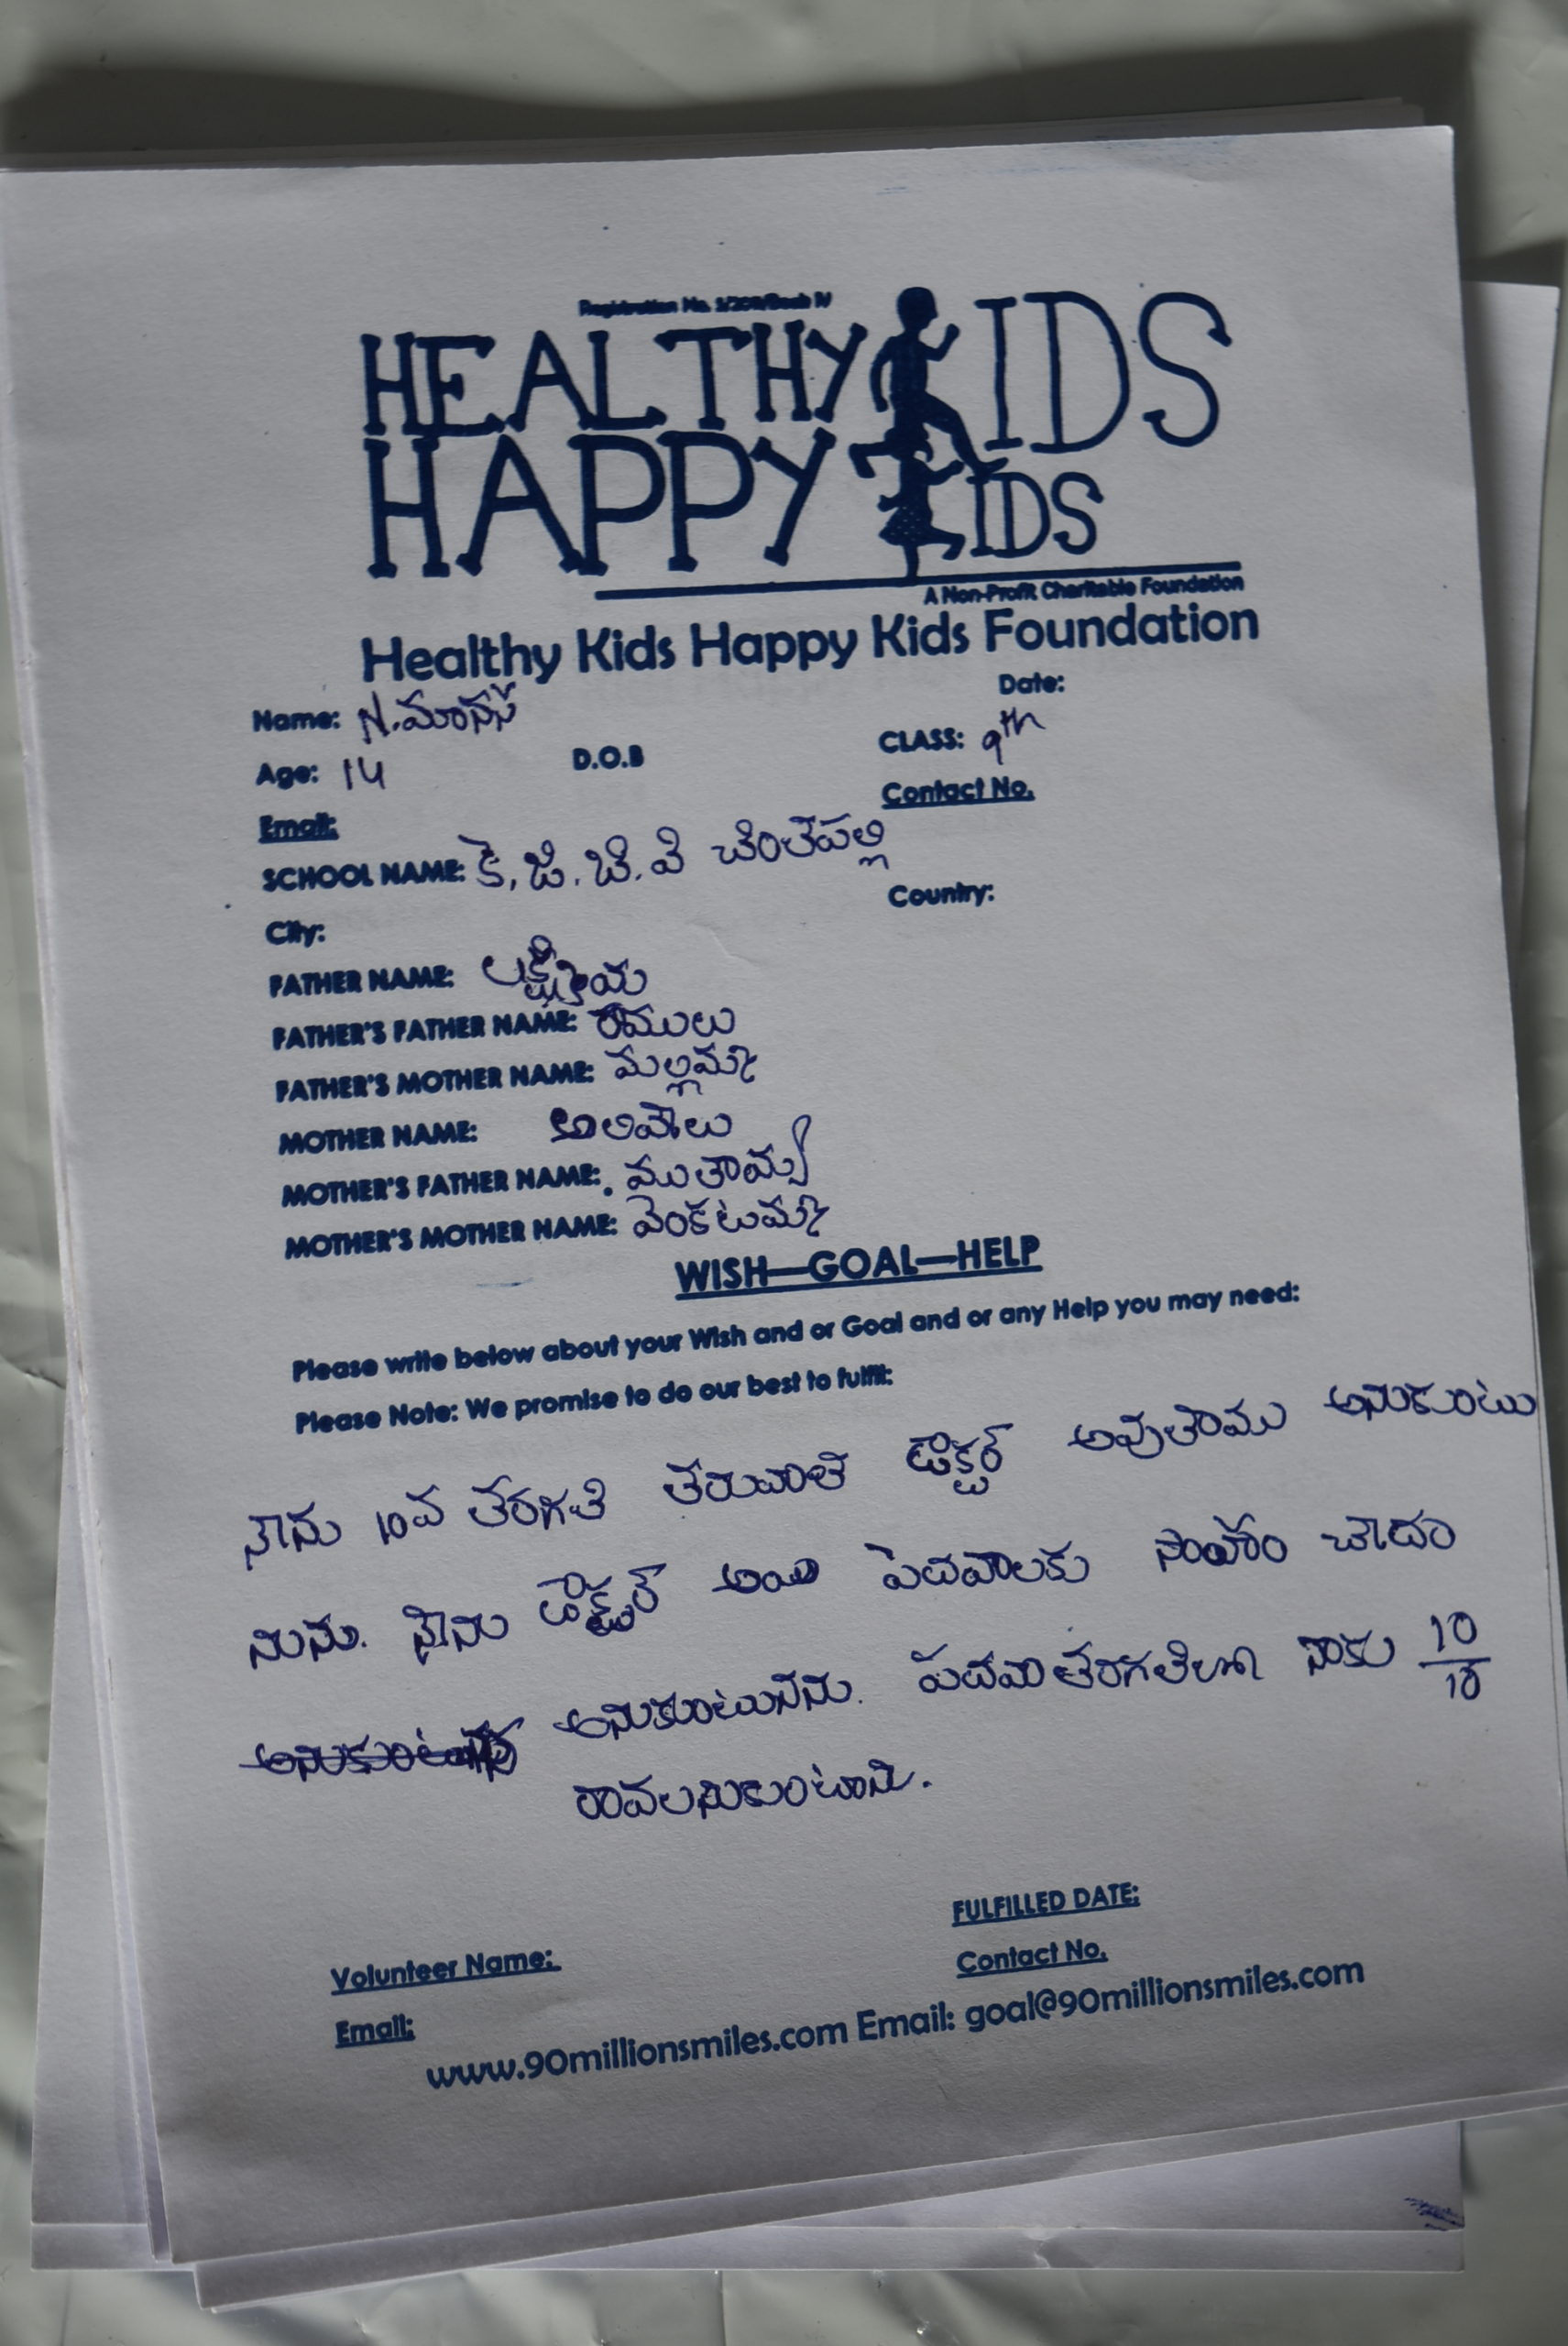 HEALTHY KIDS
HAPPY KIDS
A Non-Profit Charitable Foundation
Healthy Kids Happy Kids Foundation
Date:
Name: N.మానస
Age: 14 D.O.B CLASS: 9th
Email: Contact No.
SCHOOL NAME: కె. జి. బి. వి చింతపల్లి
City: Country:
FATHER NAME:
FATHER'S FATHER NAME: రాములు
FATHER'S MOTHER NAME: మల్లమ్మ
MOTHER NAME:
MOTHER'S FATHER NAME:
MOTHER'S MOTHER NAME: వెంకటమ్మ
WISH—GOAL—HELP
Please write below about your Wish and or Goal and or any Help you may need:
Please Note: We promise to do our best to fulfil:
నాను 10వ తరగతి తరువాత డాక్టర్ అవుతాము అనుకుంటు
నును. నాను డాక్టర్ అయి పెదవాలకు చాదం
అనుకుంటునను. పదవ తరగతిలో నాకు 10/10
రావలనుకుంటాను.
FULFILLED DATE:
Volunteer Name: Contact No.
Email:
www.90millionsmiles.com Email: goal@90millionsmiles.com